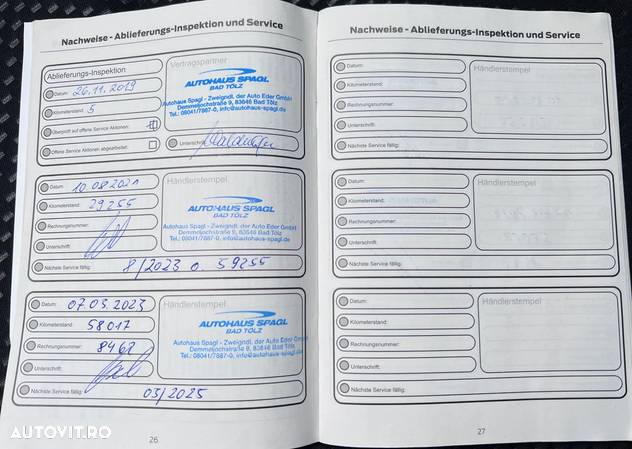 Nachweise - Ablieferungs-Inspektion und Service
Ablieferungs-Inspektion
Datum: 26.11.2019
Kilometerstand: 5
Überprüft auf offene Service Aktionen:
Offene Service Aktionen abgearbeitet:
Vertragspartner
AUTOHAUS SPAGL
BAD TÖLZ
Autohaus Spagl - Zweigndl. der Auto Eder GmbH
Demmeljochstraße 9, 83646 Bad Tölz
Tel.: 08041/7887-0, info@autohaus-spagl.de
Unterschrift:
Datum: 10.08.2021
Kilometerstand: 29255
Rechnungsnummer:
Unterschrift:
Nächste Service fällig: 8/2023 o. 59255
Händlerstempel
AUTOHAUS SPAGL
BAD TÖLZ
Autohaus Spagl - Zweigndl. der Auto Eder GmbH
Demmeljochstraße 9, 83646 Bad Tölz
Tel.: 08041/7887-0, info@autohaus-spagl.de
Datum: 07.03.2023
Kilometerstand: 58017
Rechnungsnummer: 8468
Unterschrift:
Nächste Service fällig: 03/2025
Händlerstempel
AUTOHAUS SPAGL
BAD TÖLZ
Autohaus Spagl - Zweigndl. der Auto Eder GmbH
Demmeljochstraße 9, 83646 Bad Tölz
Tel.: 08041/7887-0, info@autohaus-spagl.de
26
AUTOVIT.RO
Nachweise - Ablieferungs-Inspektion und Service
Datum:
Kilometerstand:
Rechnungsnummer:
Unterschrift:
Nächste Service fällig:
Händlerstempel
Datum:
Kilometerstand:
Rechnungsnummer:
Unterschrift:
Nächste Service fällig:
Händlerstempel
Datum:
Kilometerstand:
Rechnungsnummer:
Unterschrift:
Nächste Service fällig:
Händlerstempel
27